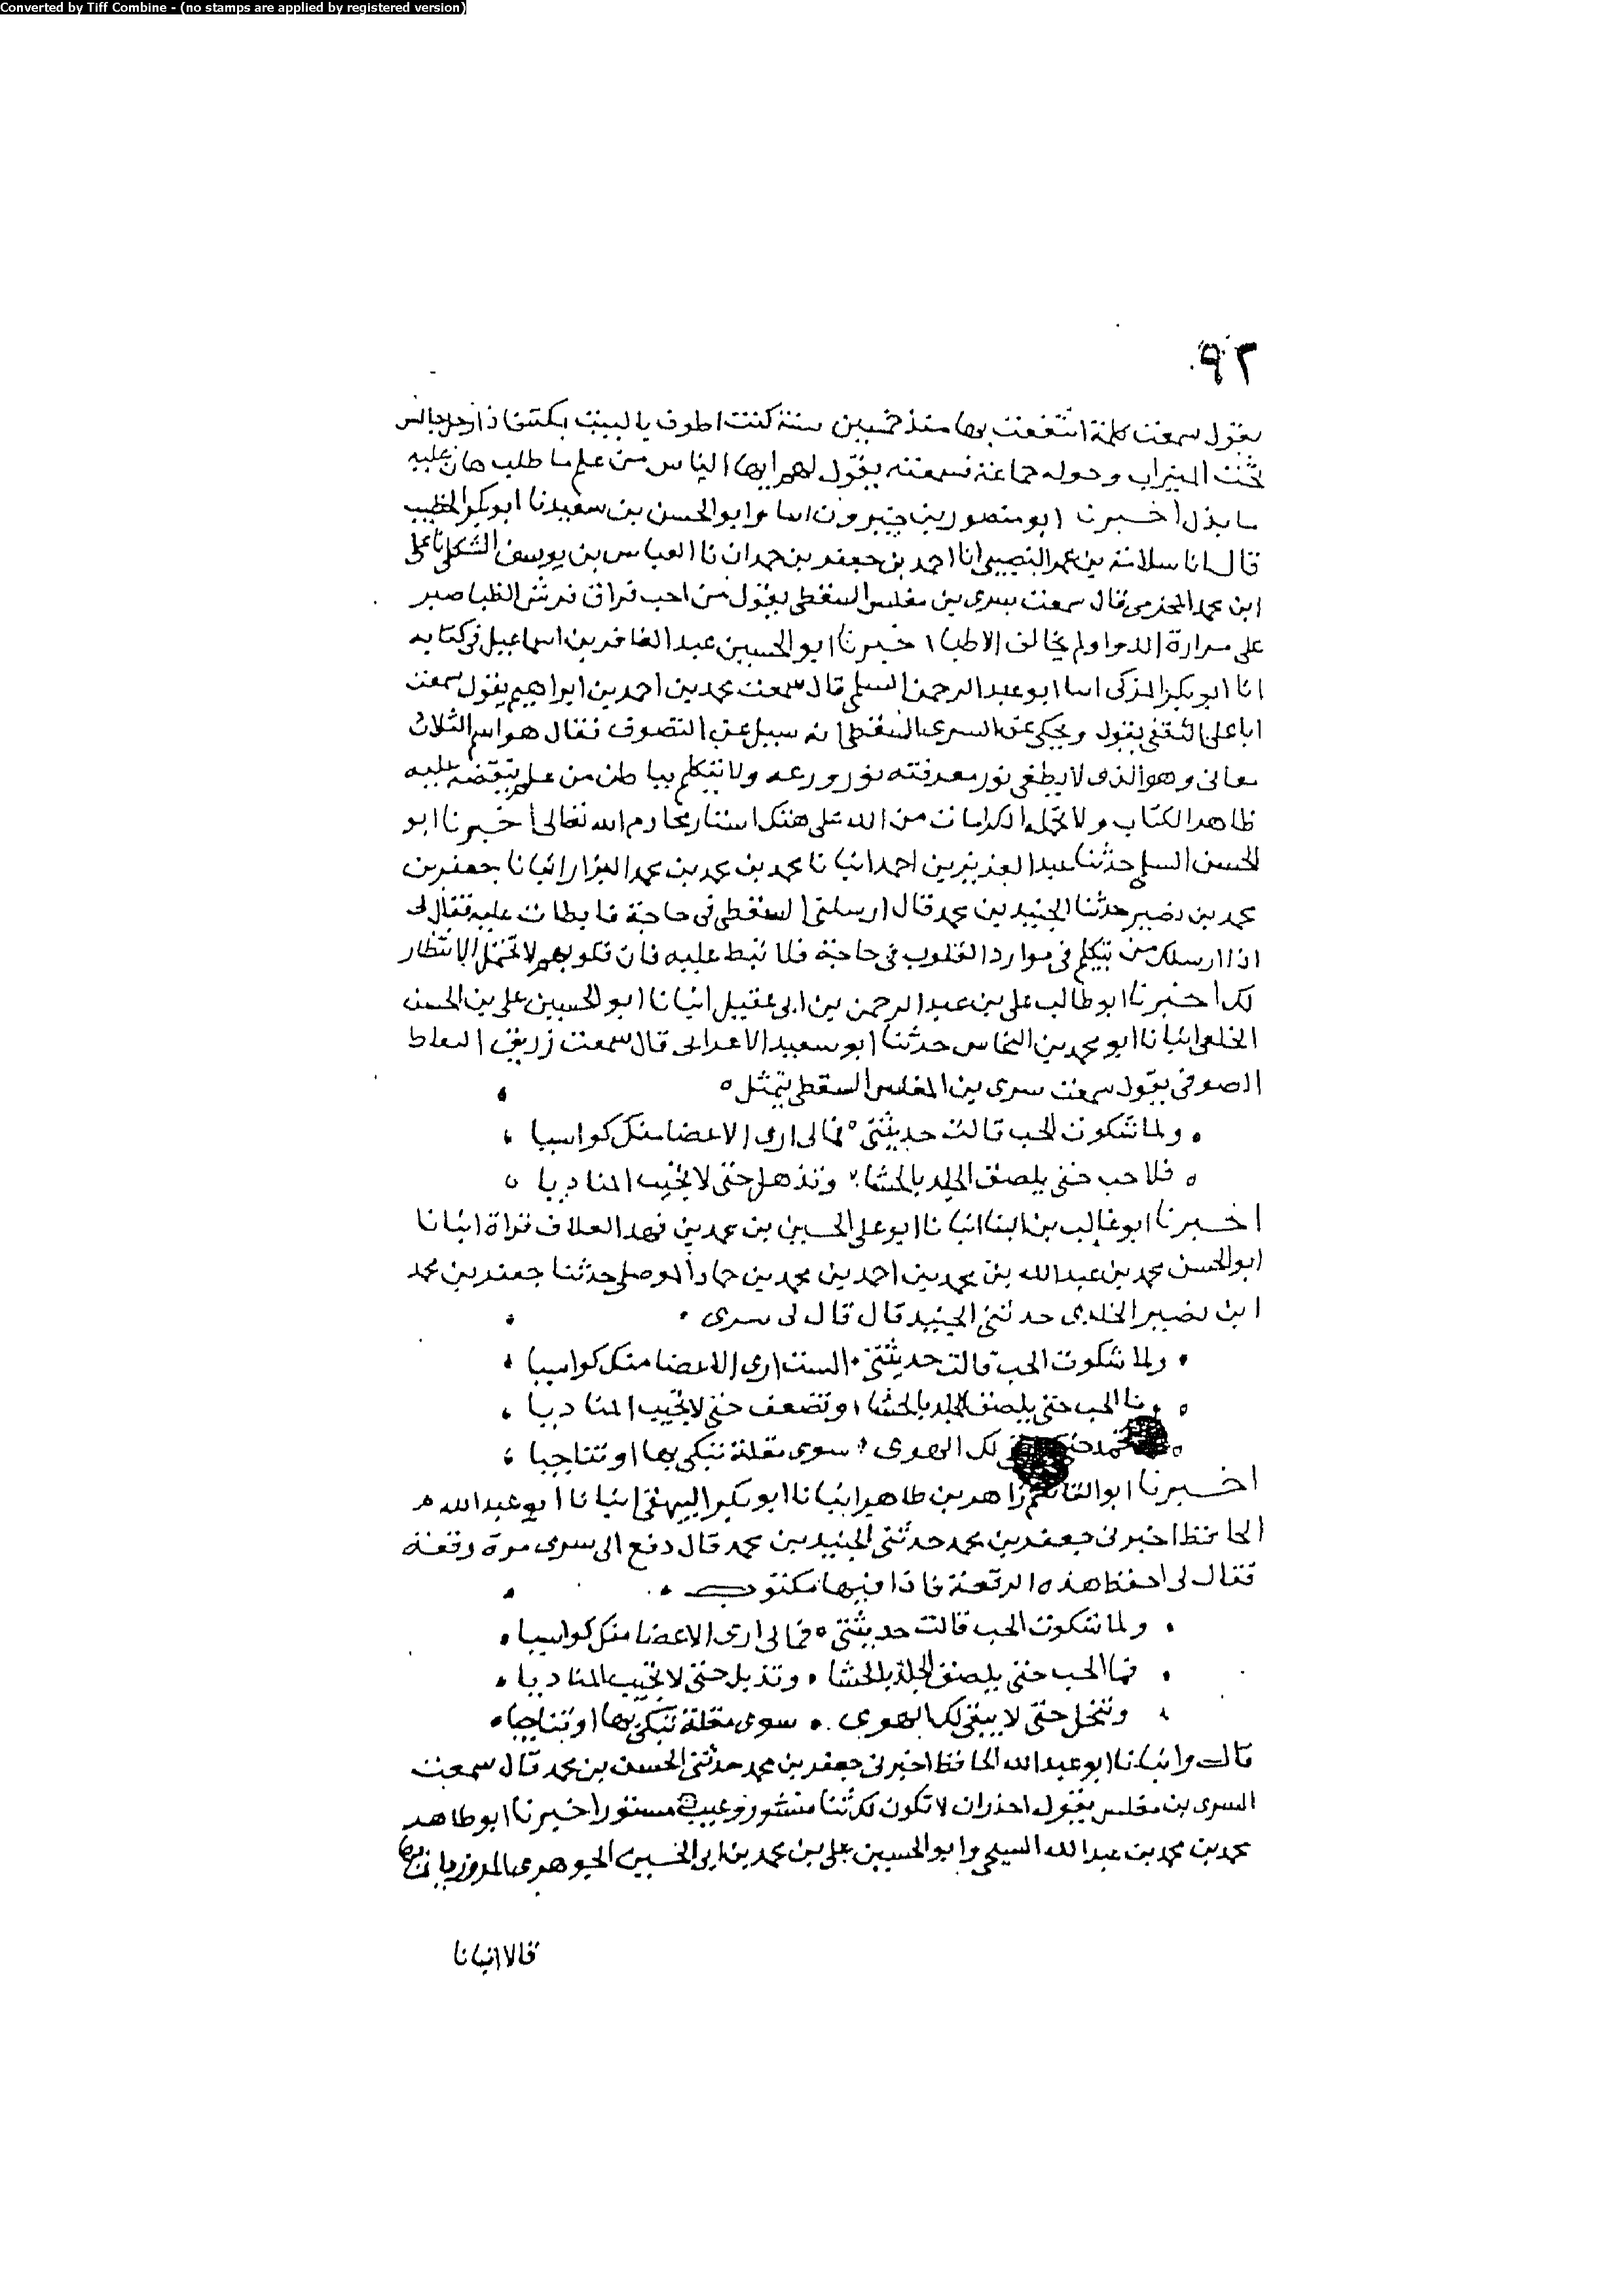 Converted by Tiff Combine - (no stamps are applied by registered version)
٩٢
يقول سمعت كلمة انتفعت بها منذ خمسين سنة كنت اطوف بالبيت بمكة فاذا رجل جالس
تحت الميزاب وحوله جماعة فسمعته يقول لهم ايها الناس من علم ما طلب هان عليه
ما بذل اخبرنا ابو منصور بن خيرون انا وابو الحسن بن سعيد نا ابو بكر الخطيب
قال انا سلامة بن عمر النصيبي انا احمد بن جعفر بن حمدان نا العباس بن يوسف الشكلي نا علي
ابن محمد المخرمي قال سمعت سري بن مغلس السقطي يقول من احب فراق فرش الظبا صبر
على مرارة الدوا ولم يخالف الاطبا اخبرنا ابو الحسين عبد الغافر بن اسماعيل في كتابه
انا ابو بكر المزكى انا ابو عبد الرحمن السلمي قال سمعت محمد بن احمد بن ابراهيم يقول سمعت
ابا علي الثقفي يقول ويحكى عن السري السقطي انه سيل عن التصوف فقال هو اسم لثلاث
معانى وهو الذى لا يطفى نور معرفته نور ورعه ولا يتكلم بباطن من علم ينقضه عليه
ظاهر الكتاب ولا تحمله الكرامات من الله على هتك استار محارم الله تعالى اخبرنا ابو
الحسن السلمي حدثنا عبد العزيز بن احمد انبانا محمد بن محمد بن محمد البزار انبانا جعفر بن
محمد بن نصير حدثنا الجنيد بن محمد قال ارسلنى السقطي في حاجة فابطات عليه فقال لى
اذا ارسلك من يتكلم في موارد القلوب في حاجة فلا تبط عليه فان قلوبهم لا تحتمل الانتظار
لك اخبرنا ابو طالب علي بن عبد الرحمن بن ابى عقيل انبانا ابو الحسين علي بن الحسن
الخلعي انبانا ابو محمد بن النحاس حدثنا ابو سعيد الاعرابى قال سمعت زريق
الصوفى يقول سمعت سرى بن المغلس السقطي يتمثل
ولما شكوت الحب قالت حديثتى فما لى ارى الاعضا منك كواسيا
فلا حب حتى يلصق الجلد بالحشا وتذهل حتى لا تجيب المناديا
اخبرنا ابو غالب بن البنا انبانا ابو علي الحسين بن محمد بن فهد العلاف قراة انبانا
ابو الحسن محمد بن عبد الله بن محمد بن احمد بن محمد بن حماد الموصلي حدثنا جعفر بن محمد
ابن نصير الخلدى حدثنى الجنيد قال قال لى سرى
ولما شكوت الحب قالت حديثتى الست ارى الاعضا منك كواسيا
وما الحب حتى يلصق الجلد بالحشا وتضعف حتى لا تجيب المناديا
لك الهوى سوى مقلة تبكى بها او تناجيا
اخبرنا ابو القاسم زاهر بن طاهر انبانا ابو بكر البيهقي انبانا ابو عبد الله
الحافظ اخبرنى جعفر بن محمد حدثنى الجنيد بن محمد قال دفع الى سرى مرة رقعة
فقال لى احفظ هذه الرقعة فاذا فيها مكتوب
ولما شكوت الحب قالت حديثتى فما لى ارى الاعضا منك كواسيا
فما الحب حتى يلصق الجلد بالحشا وتذبل حتى لا تجيب المناديا
وتنحل حتى لا يبقى لك الهوى سوى مقلة تبكى بها او تناجيا
قال وانبانا ابو عبد الله الحافظ اخبرنى جعفر بن محمد حدثنى الحسن بن محمد قال سمعت
السرى بن مغلس يقول احذر ان لا تكون لك ثنا منشور وعيب مستور اخبرنا ابو طاهر
محمد بن محمد بن عبد الله السبحى وابو الحسين علي بن محمد بن ابى الحسين الجوهرى المروزيان بها
قالا انبانا